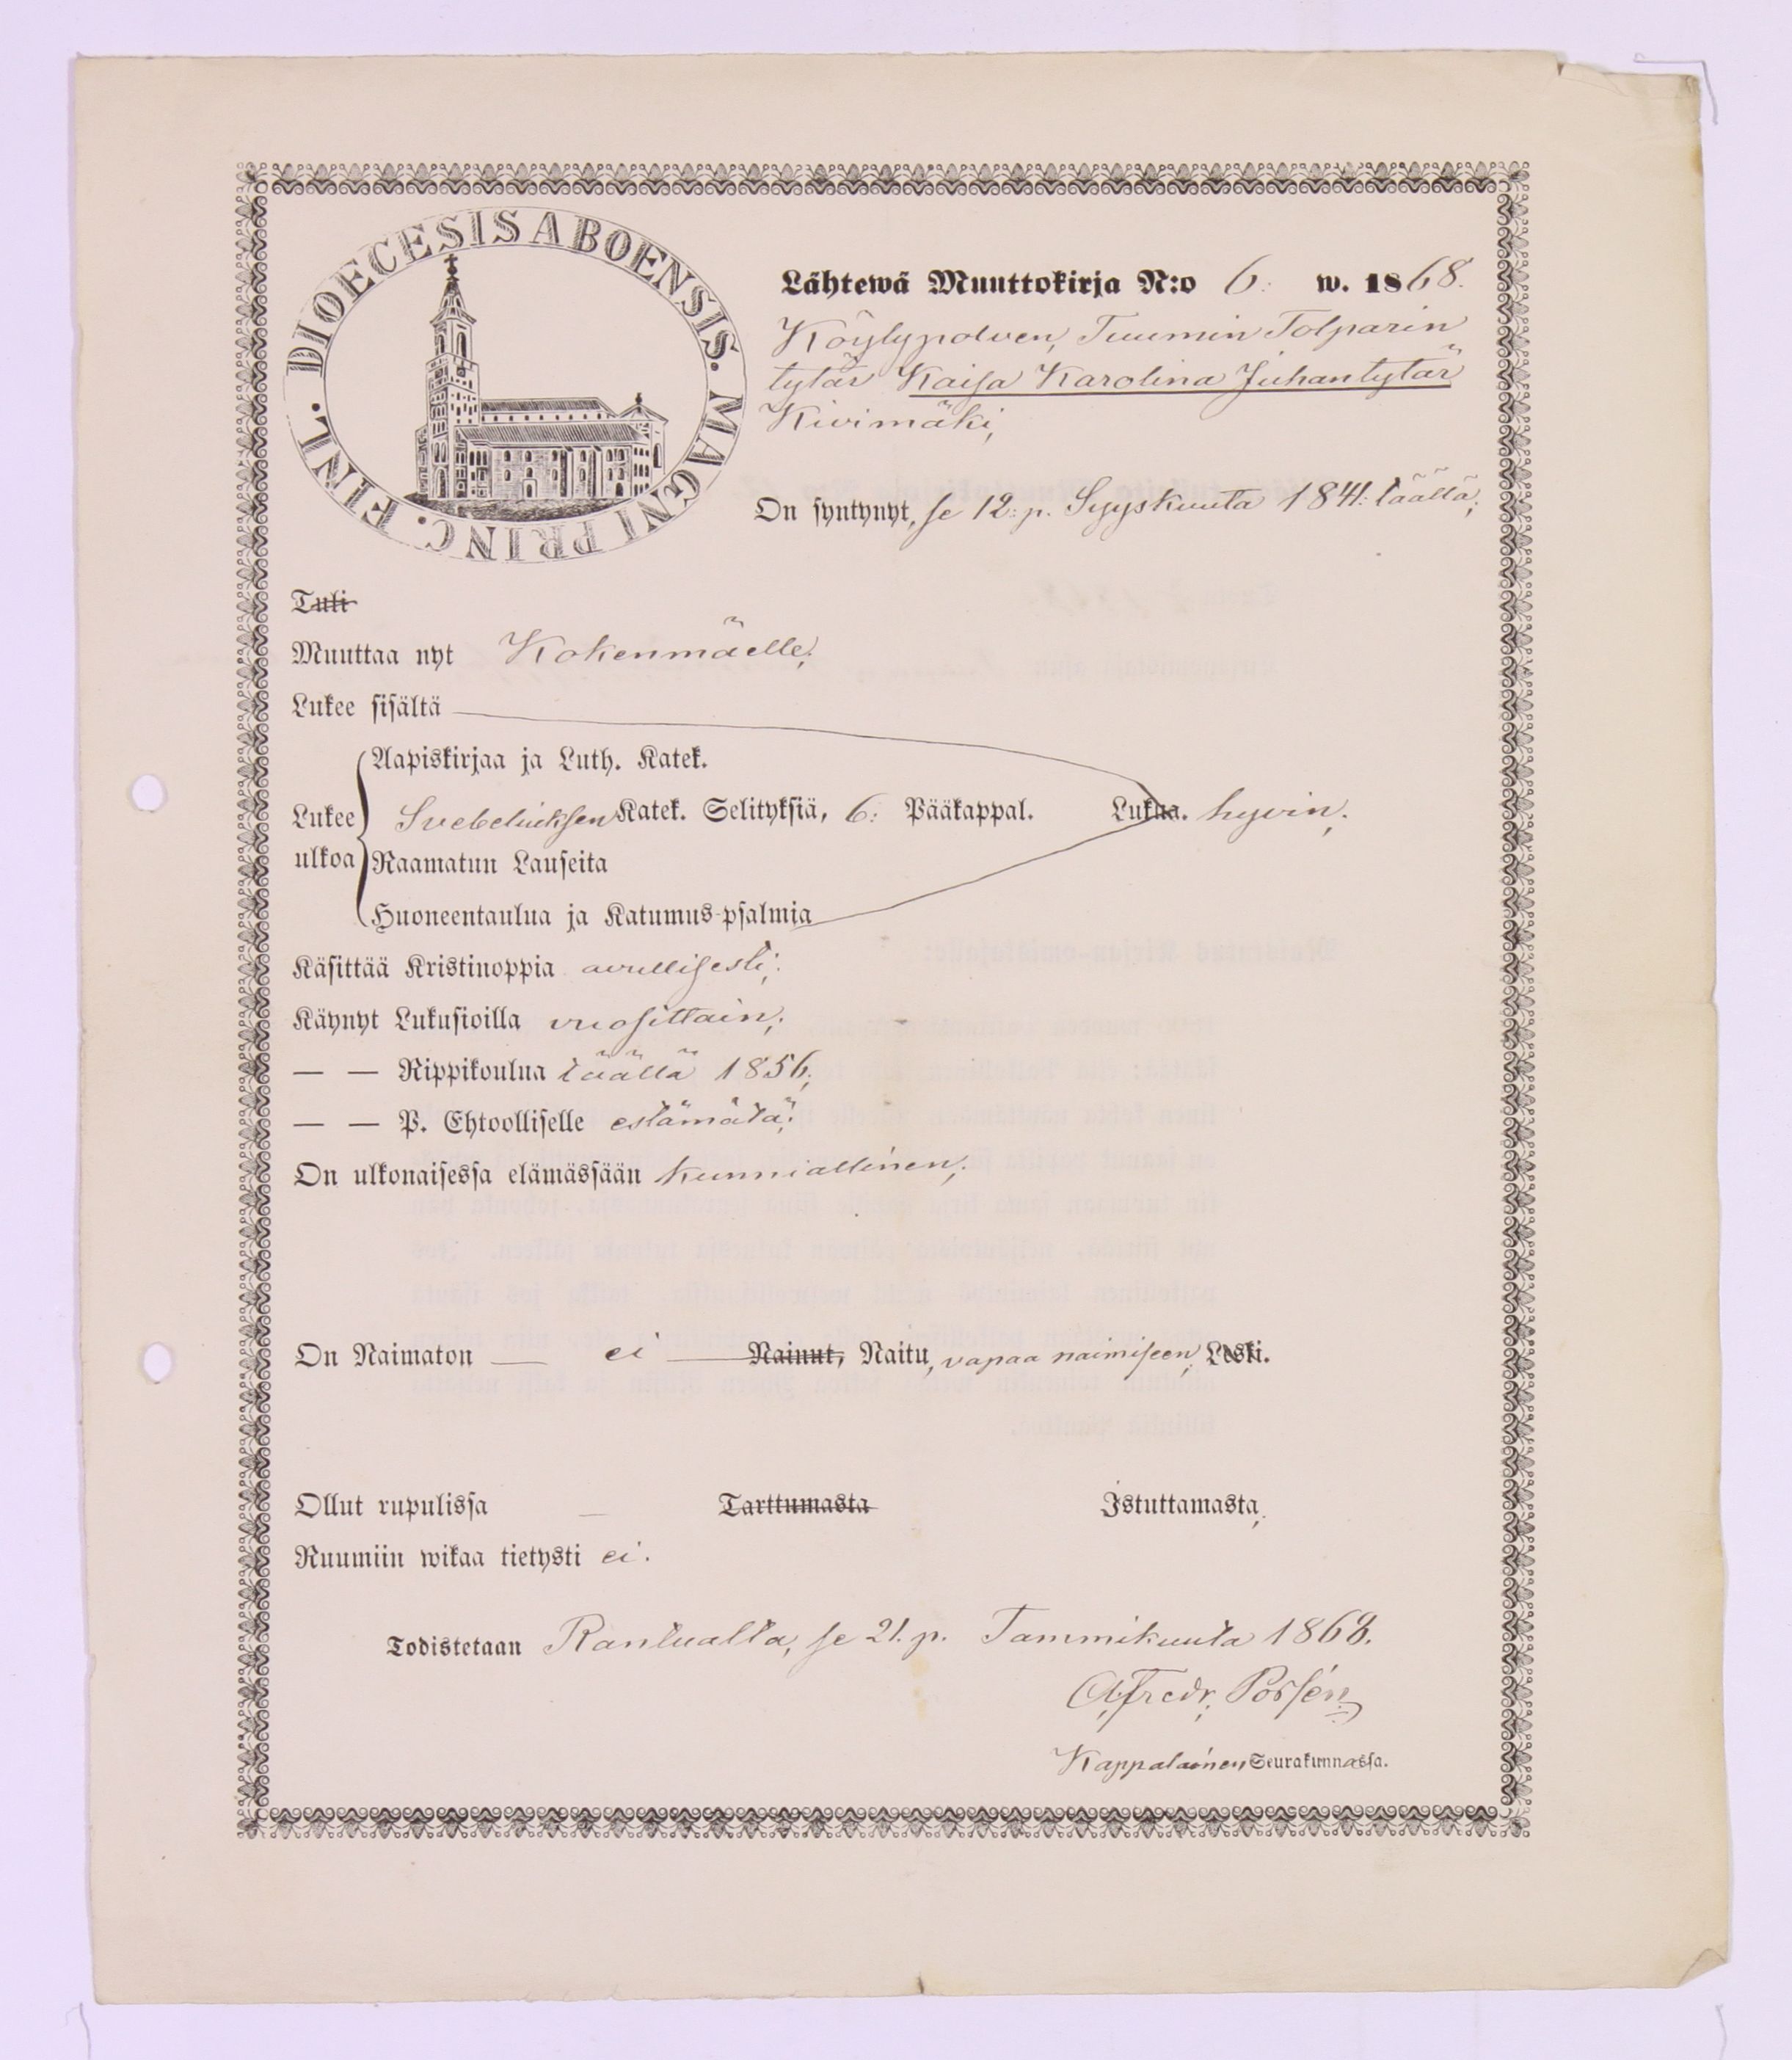 DIOECESIS ABOENSIS. MAGNI PRINC. FINL.
Lähtewä Muuttokirja N:o 6: w. 1868.
Köylypolven, Tuumin Tolparin
tytär Kaisa Karolina Juhantytär
Kivimäki,
On syntynyt, se 12: p. Syyskuuta 1841: täällä;
Tuli
Muuttaa nyt Kokenmäelle;
Lukee sisältä
Aapiskirjaa ja Luth. Katek.
Lukee ulkoa Svebeliuksen Katek. Selityksiä, 6: Pääkappal. Lukua. hyvin;
Raamatun Lauseita
Huoneentaulua ja Katumus-psalmia
Käsittää Kristinoppia avullisesti;
Käynyt Lukusioilla vuosittain;
— — Rippikoulua täällä 1856;
— — P. Ehtoolliselle estämätä;
On ulkonaisessa elämässään kunniallinen;
On Naimaton — ei — Nainut, Naitu, vapaa naimiseen, Leski.
Ollut rupulissa — Tarttumasta Istuttamasta;
Ruumiin wikaa tietysti ei.
Todistetaan Rantualta, se 21. p. Tammikuuta 1868.
Fredr. Porsén
Kappalainen Seurakunnassa.